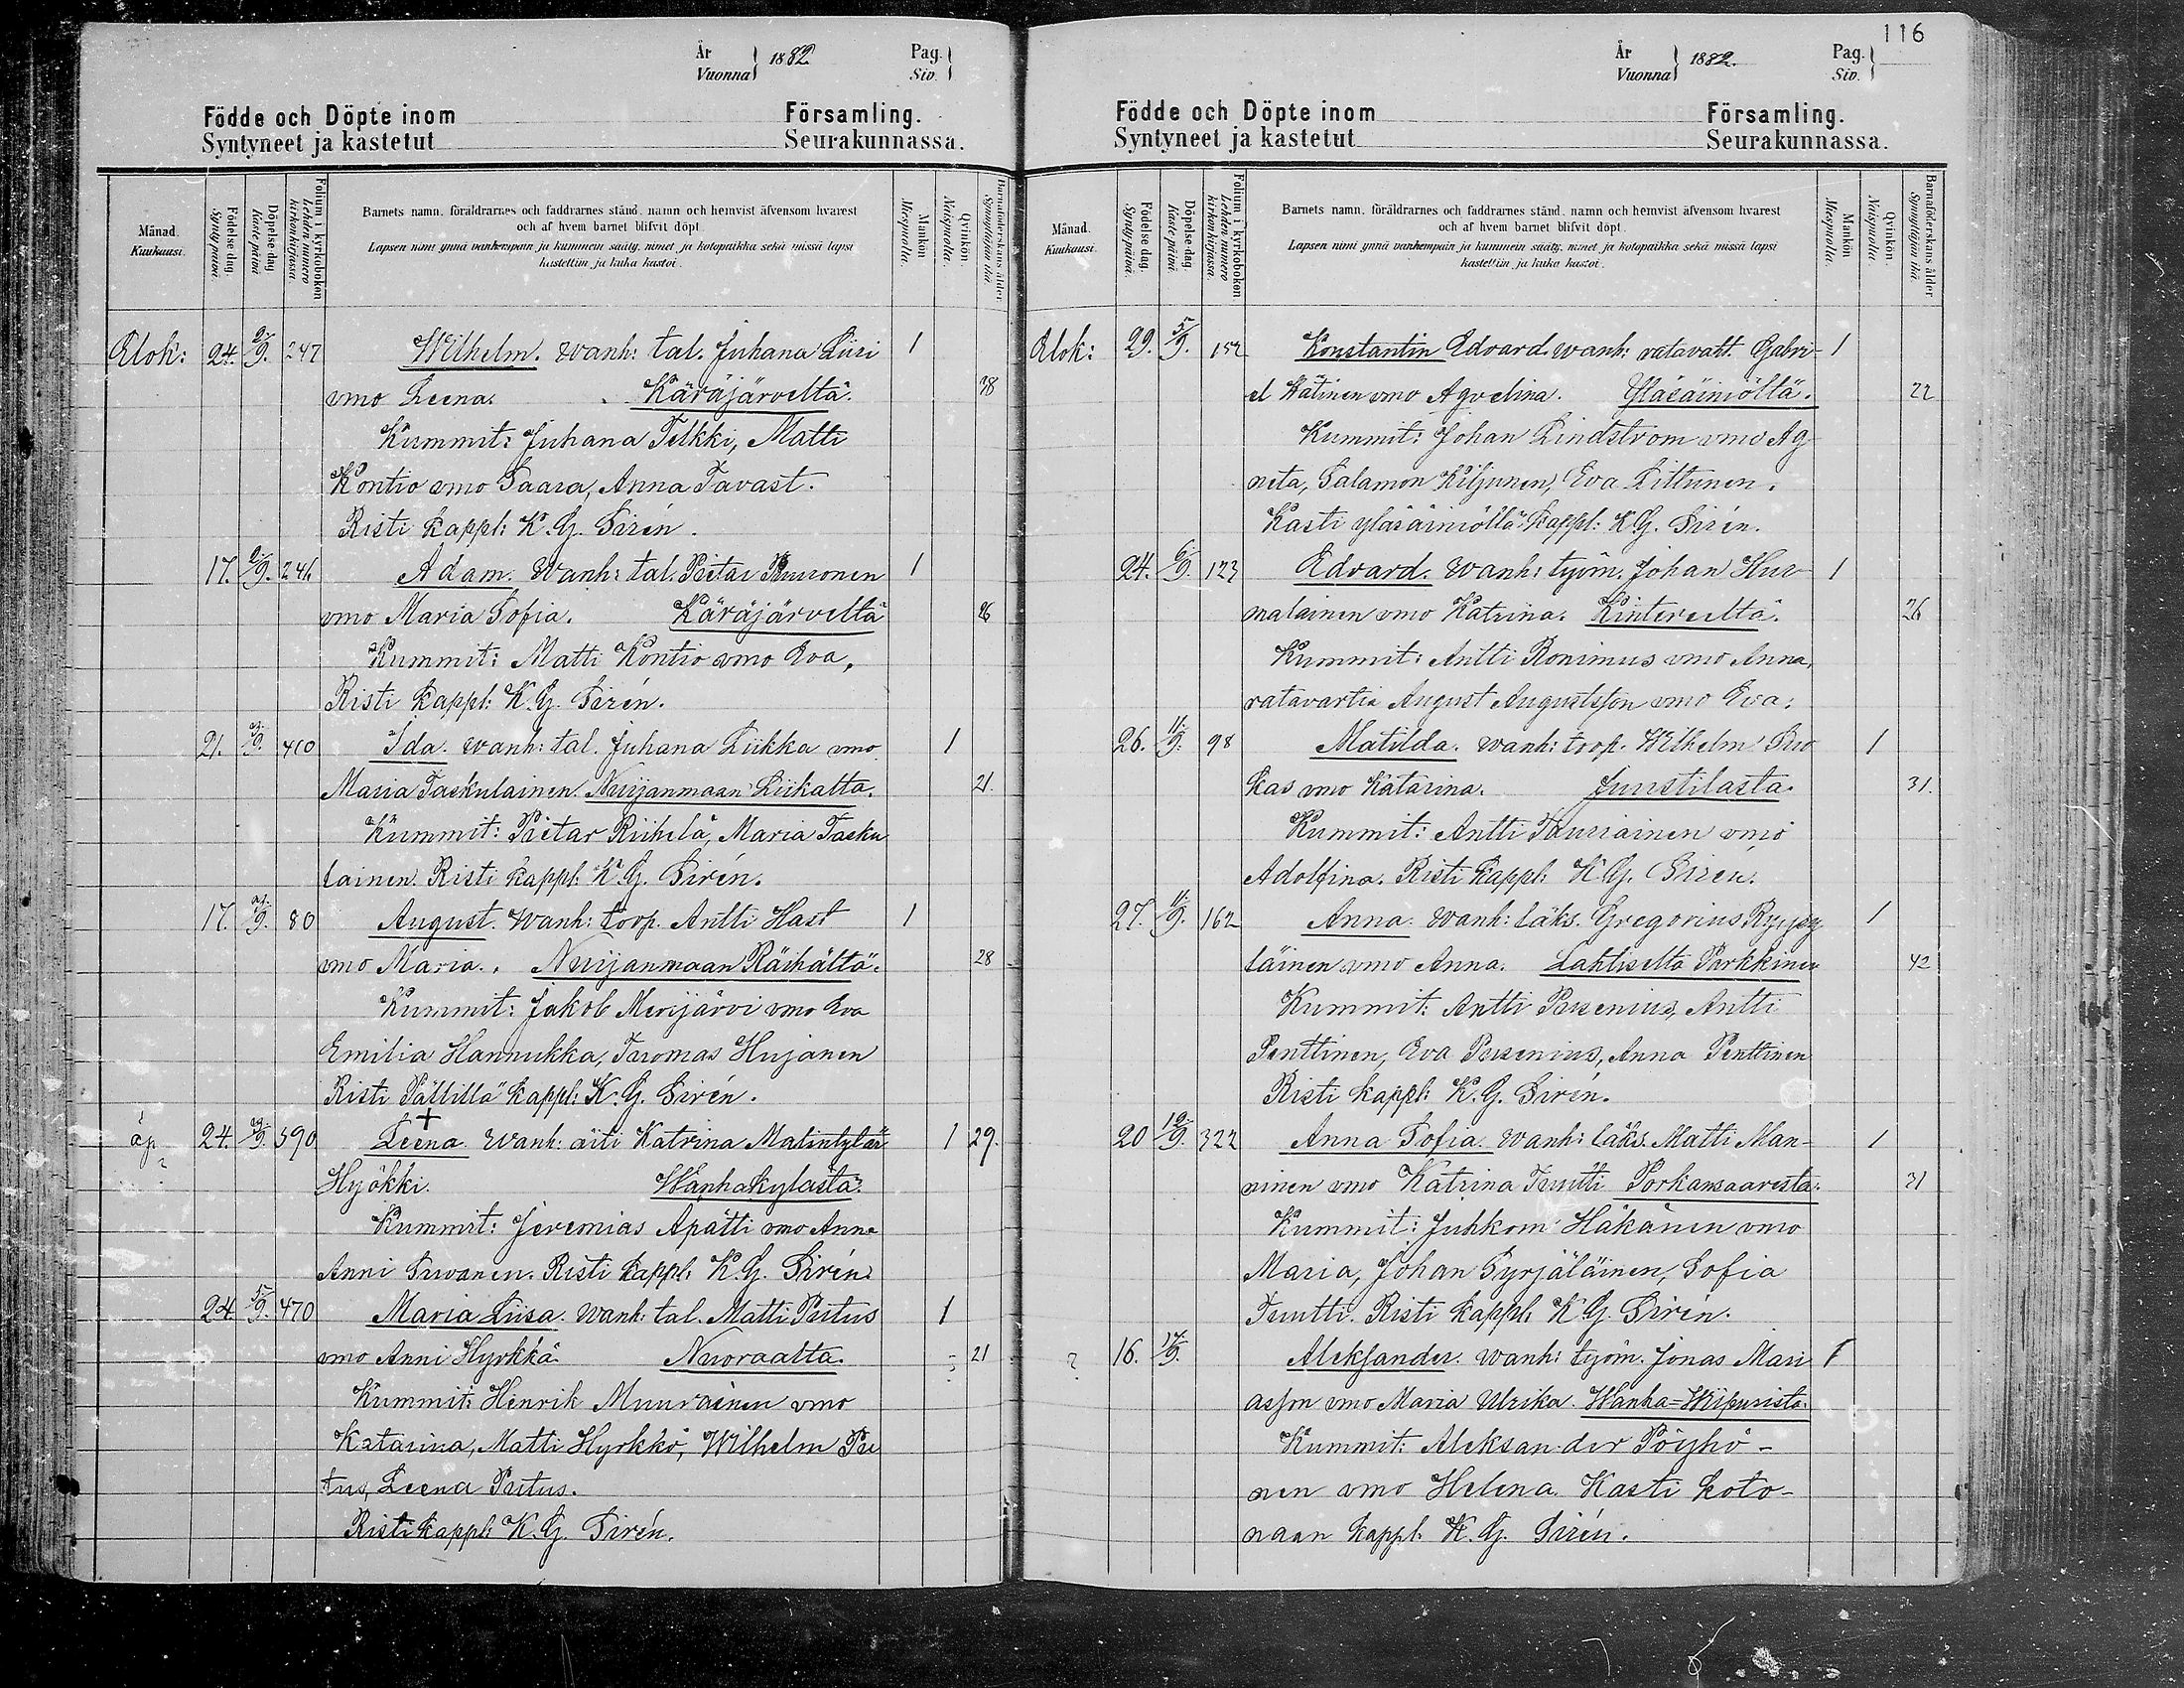 År
Vuonna } 1882. Pag.
Siv.
Födde och Döpte inom Församling.
Syntyneet ja kastetut Seurakunnassa.
Månad.
Kuukausi.
Födelse dag.
Synty päivä.
Döpelse-dag
Kaste päivä
Folium i kyrkobokon
Lehden numero
kirkonkirjassa.
Barnets namn, föräldrarnes och faddrarnes stånd, namn och hemvist äfvensom hvarest
och af hvem barnet blifvit döpt.
Lapsen nimi ynnä vanhempain ja kummein sääty, nimet ja kotopaikka sekä missä lapsi
kastettiin ja kuka kastoi.
Mankön
Miespuolia.
Qvinkön.
Naispuolia.
Barnaföderskans ålder.
Synnyttäjän ikä.
Elok: 24. 2/9. 247 Wilhelm. Wanh: tal. Juhana Liiri 1
vmo Leena. Käräjärveltä. 38
Kummit: Juhana Telkki, Matti
Kontio vmo Saara, Anna Tavast.
Risti kappl: K. G. Sirén.
17. 2/9. 246 Adam. Wanh: tal. Pietar Puuronen 1
vmo Maria Sofia. Käräjärveltä 26
Kummit: Matti Kontio vmo Eva,
Risti kappl: K. G. Sirén.
21. /9. 410 Ida. Wanh: tal. Juhana Liikka vmo 1
Maria Taskulainen. Nuijanmaan Liikalta. 21.
Kummit: Pietar Riihelä, Maria Tasku
lainen. Risti kappl: K. G. Sirén.
17. /9. 80 August. Wanh: torp. Antti Hast 1
vmo Maria. Nuijanmaan Räihältä. 28
Kummit: Jakob Merijärvi vmo Eva
Emilia Hannukka, Tuomas Hujanen
Risti Pällillä kappl: K. G. Sirén.
äp. 24. /9. 590 + Leena Wanh: äiti Katrina Matintytär 1 29.
Hyökki. Wanhakylästä.
Kummit: Jeremias Apatti vmo Anna
Anni Suvanen. Risti kappl: K. G. Sirén
24. 5/9. 470 Maria Liisa. Wanh: tal. Matti Pietus 1
vmo Anni Hyrkkä. Nuoraalta. 21
Kummit: Henrik Muurainen vmo
Katarina, Matti Hyrkkö, Wilhelm Pie
tus, Leena Pietus.
Risti kappl: K. G. Sirén.
116
År
Vuonna } 1882. Pag.
Siv.
Födde och Döpte inom Församling.
Syntyneet ja kastetut Seurakunnassa.
Månad.
Kuukausi.
Födelse dag.
Synty päivä.
Döpelse-dag.
Kaste päivä.
Folium i kyrkobokon
Lehden numero
kirkonkirjassa.
Barnets namn, föräldrarnes och faddrarnes stånd, namn och hemvist äfvensom hvarest
och af hvem barnet blifvit döpt.
Lapsen nimi ynnä vanhempain ja kummein sääty, nimet ja kotopaikka sekä missä lapsi
kastettiin ja kuka kastoi.
Mankön
Miespuolia.
Qvinkön.
Naispuolia.
Barnaföderskans ålder
Synnyttäjän ikä.
Elok: 29. 5/9. 152 Konstantin Edvard. wanh: ratavatt. Gabri- 1
el Kätinen vmo Agvelina. Yläsäiniöltä. 22
Kummit: Johan Lindström vmo Ag
neta, Salamon Kiljunen, Eva Littunen.
Kasti yläsäiniöllä kappl: K. G. Sirén.
24. 6/9. 123 Edvard. Wanh: työm. Johan Hur 1
malainen vmo Katrina. Kintereeltä. 26
Kummit: Antti Ronimus vmo Anna,
ratavartia August Augustsson vmo Eva.
26. 11/9. 98 Matilda. Wanh: torp. Wilhelm Suo 1
kas vmo Katarina. Juustilasta. 31.
Kummit: Antti Tauriainen vmo
Adolfina. Risti kappl: K. G. Sirén.
27. 11/9. 162 Anna. Wanh: läks. Gregorius 1
läinen vmo Anna. Lahtiselta Parkkinen 42
Kummit: Antti Pusenius, Antti
Penttinen, Eva Pusenius, Anna Penttinen
Risti kappl: K. G. Sirén.
20 12/9. 322 Anna Sofia. Wanh: läks. Matti Man- 1
ninen vmo Katrina Tuutti Porkansaaresta. 31
Kummit: Juhkom Häkänen vmo
Maria, Johan Pyrjäläinen, Sofia
Tuutti. Risti kappl: K. G. Sirén.
? 16. 14/9. Aleksander. Wanh: työm. Jonas Mari 1
asson vmo Maria Ulrika. Wanha=Wiipurista.
Kummit: Aleksander Pöyhö-
nen vmo Helena. Kasti koto-
naan kappl. K. G. Sirén.